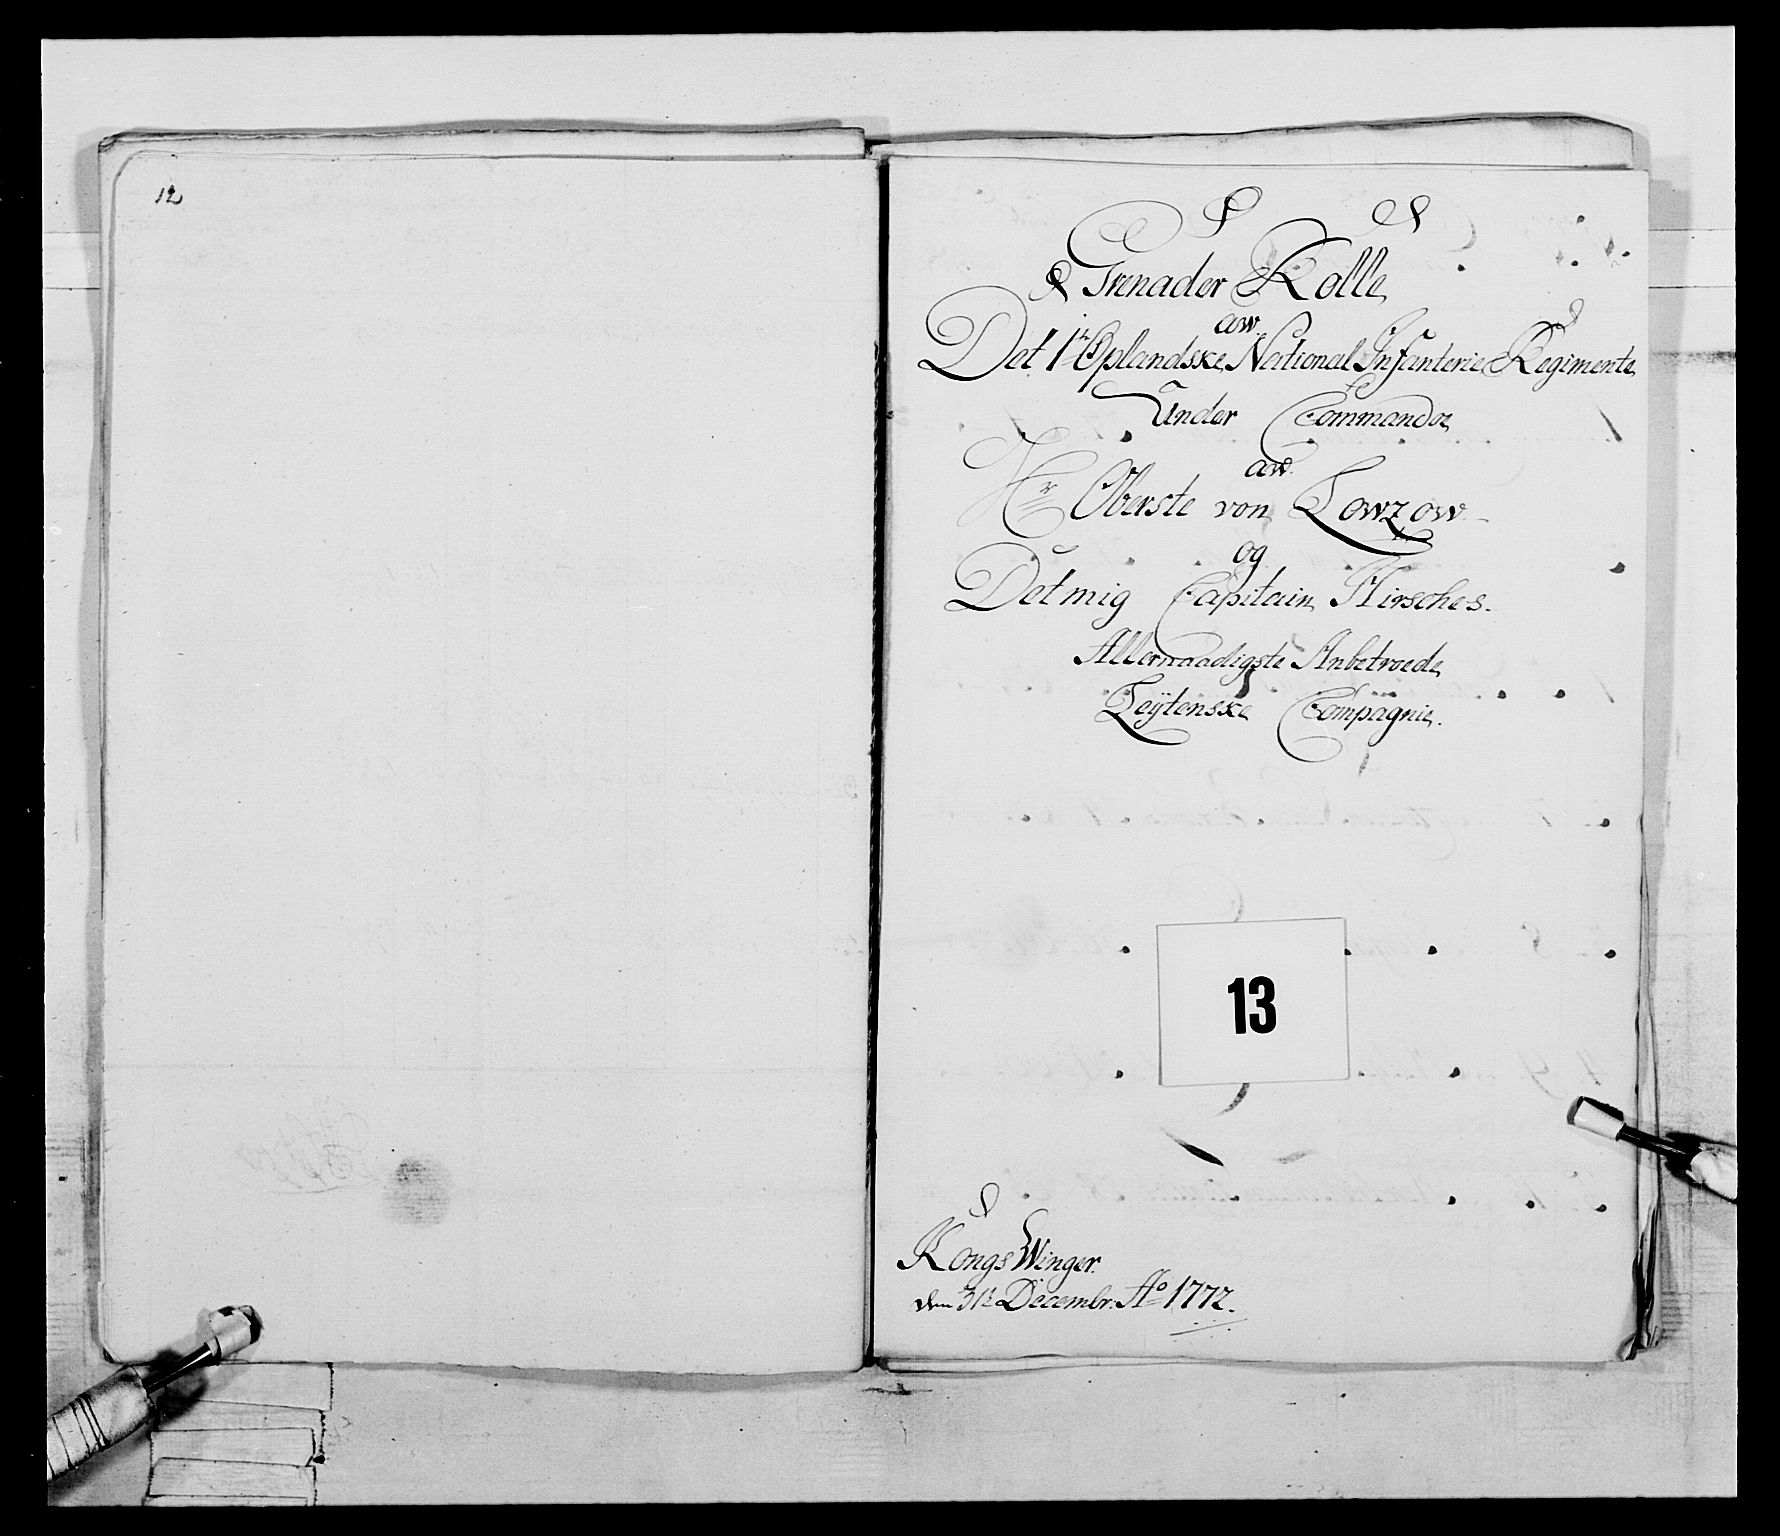 12
Grenader Rolle
aw
Det 1te Oplandske National Infanterie Regimente
Under Commando
aw
Hr Oberste von Lowzow
og
Det mig Capitain Hirsches.
Allernaadigste Anbetroede
Leÿtenske Compagnie.
13
KongsWinger.
den 31te Decembr. Ao 1772.